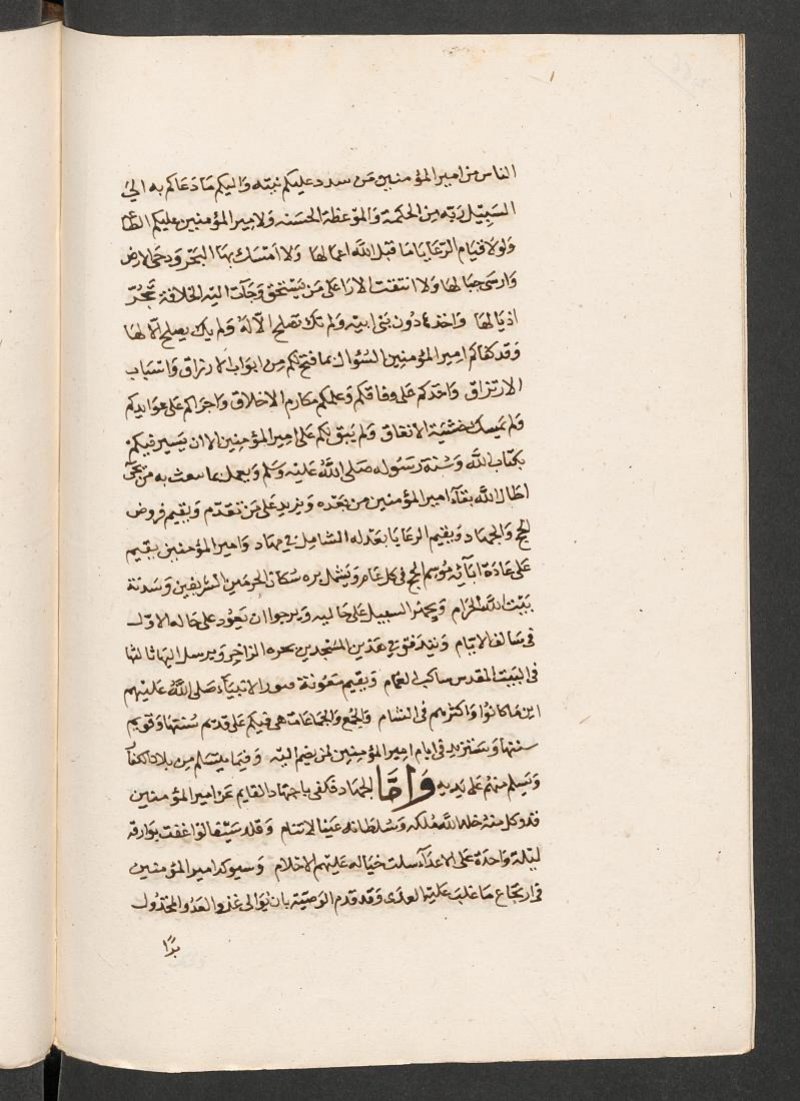 الناس من امير المؤمنين من سدد عليكم نيته واليكم ما دعاكم به الى
السبيل ربه من الحكمة والموعظة الحسنه ولامير المؤمنين عليكم الطا
ولولا قيام الرعايا ما قبل الله اعمالها ولا امتسك بها البحر ودحى الارض
وارسى جبالها ولا اتفقت الارا على من يستحق وجآت اليه الخلافة تجر
اذيالها واخذها دون بنى ابيه ولم تك تصلح الا له ولم يك يصلح الا لها
وقد كفاكم امير المؤمنين السؤال بما فتح لكم من ابواب الارزاق واسباب
الارتزاق واحدكم على وفاقكم وعلمكم مكارم الاخلاق واجراكم على عوايدكم
ولم يمسك خشية الانفاق ولم يبق لكم على امير المؤمنين الا ان يسير فيكم
بكتاب الله وسنة رسوله صلى الله عليه وسلم ويعمل بما سعث به من يجى
اطال الله بقآء امير المؤمنين من بعده ويزيد على من تقدم ويقيم فروض
الحج والجهاد ويقيم الرعايا بعدله الشامل في مهاد وامير المؤمنين يقيم
على عادة ابآئه موسم الحج فى كل عام ويشمل بره سكان الحرمين الشريفين وسدنة
بيت الله الحرام ويجهز السبيل على حاليه ويرجوا ان يعود على حاله الاول
فى سالف الايام ويتدفق فى هذين المسجدين بحره الزاخر ويرسل اليها ثالثها
فى البيت المقدس ساكب الغمام ويقيم معونة قبور الانبيآء صلى الله عليهم
اين ما كانوا واكثرهم فى الشام والجمع والجماعات هى فيكم على قديم سنتها وقويم
سننها وستزيد فى ايام امير المؤمنين لمن يضم اليه وفيما يتسلم من بلاد الكفار
ويسلم منهم على يديه واما الجهاد فكفى باجتهاد القايم عن امير المؤمنين
قد وكل منه خلد الله ملكه وسلطانه عينا لا تنام وقلد سيفا لو اغفت بوارقه
ليلة واحدة على الاعدآء سلت خياله عليهم الاحلام وسيوكد امير المؤمنين
فى ارتجاع ما غلب عليه العدى وقد قدم الوصية بان يوالى غزو العدو المخذول
برا